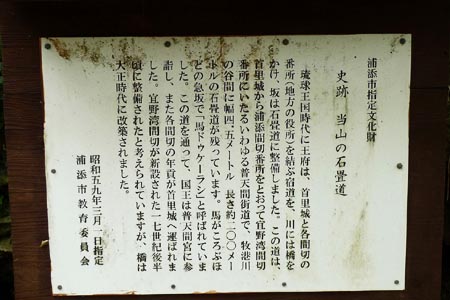 浦添市指定文化財
史跡 当山の石畳道
琉球王国時代に王府は、首里城と各間切の
番所（地方の役所）を結ぶ宿道を、川には橋を
かけ、坂は石畳道に整備しました。この道は、
首里城から浦添間切番所をとおって宜野湾間切
番所にいたるいわゆる普天間街道で、牧港川
の谷間に幅四・五メートル 長さ約二〇〇メー
トルの石畳道が残っています。馬がころぶほ
どの急坂で「馬ドゥケーラシ」と呼ばれていま
した。この道を通って、国王は普天間宮に参
詣し、また各間切の年貢が首里城へ運ばれま
した。宜野湾間切が新設された一七世紀後半
頃に整備されたと考えられていますが、橋は
大正時代に改築されました。
昭和五九年三月一日指定
浦添市教育委員会